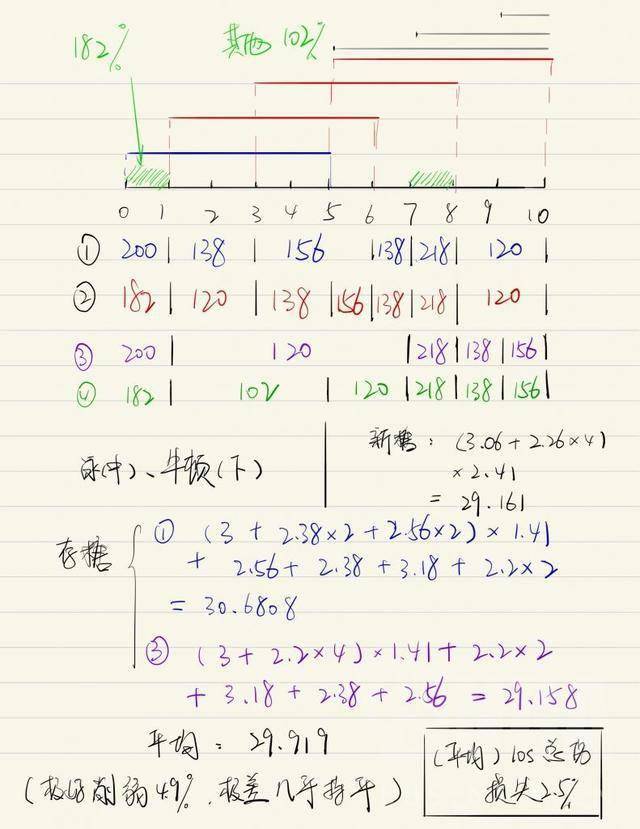 182% 其他 102%
0 1 2 3 4 5 6 7 8 9 10
① 200 | 138 | 156 | 138 | 218 | 120
② 182 | 120 | 138 | 156 | 138 | 218 | 120
③ 200 | 120 | 218 | 138 | 156 |
④ 182 | 102 | 120 | 218 | 138 | 156 |
(中)、牛顿(下)
新糖: (3.06 + 2.26×4)
× 2.41
= 29.161
存糖
① (3 + 2.38×2 + 2.56×2) × 1.41
+ 2.56 + 2.38 + 3.18 + 2.2×2
= 30.6808
③ (3 + 2.2×4) × 1.41 + 2.2×2
+ 3.18 + 2.38 + 2.56 = 29.158
平均: 29.919
(极好削弱4.9%, 极差几乎持平)
(平均) 10s 总伤
损失2.5%